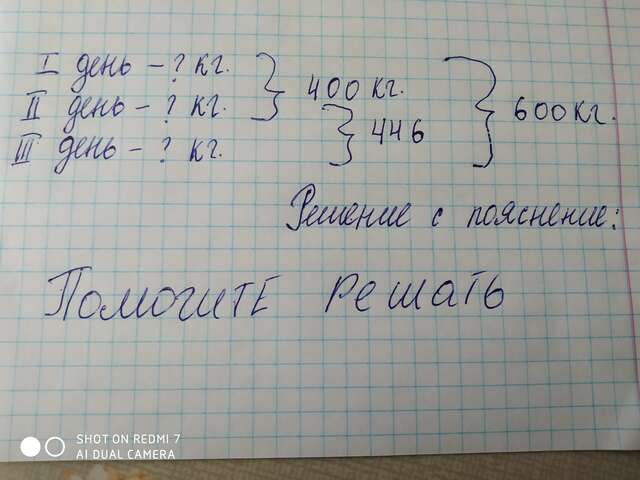 I день – ? кг.
II день – ? кг.
III день – ? кг.
400 кг.
446
600 кг.
Решение с пояснение:
Помогите решать
SHOT ON REDMI 7
AI DUAL CAMERA